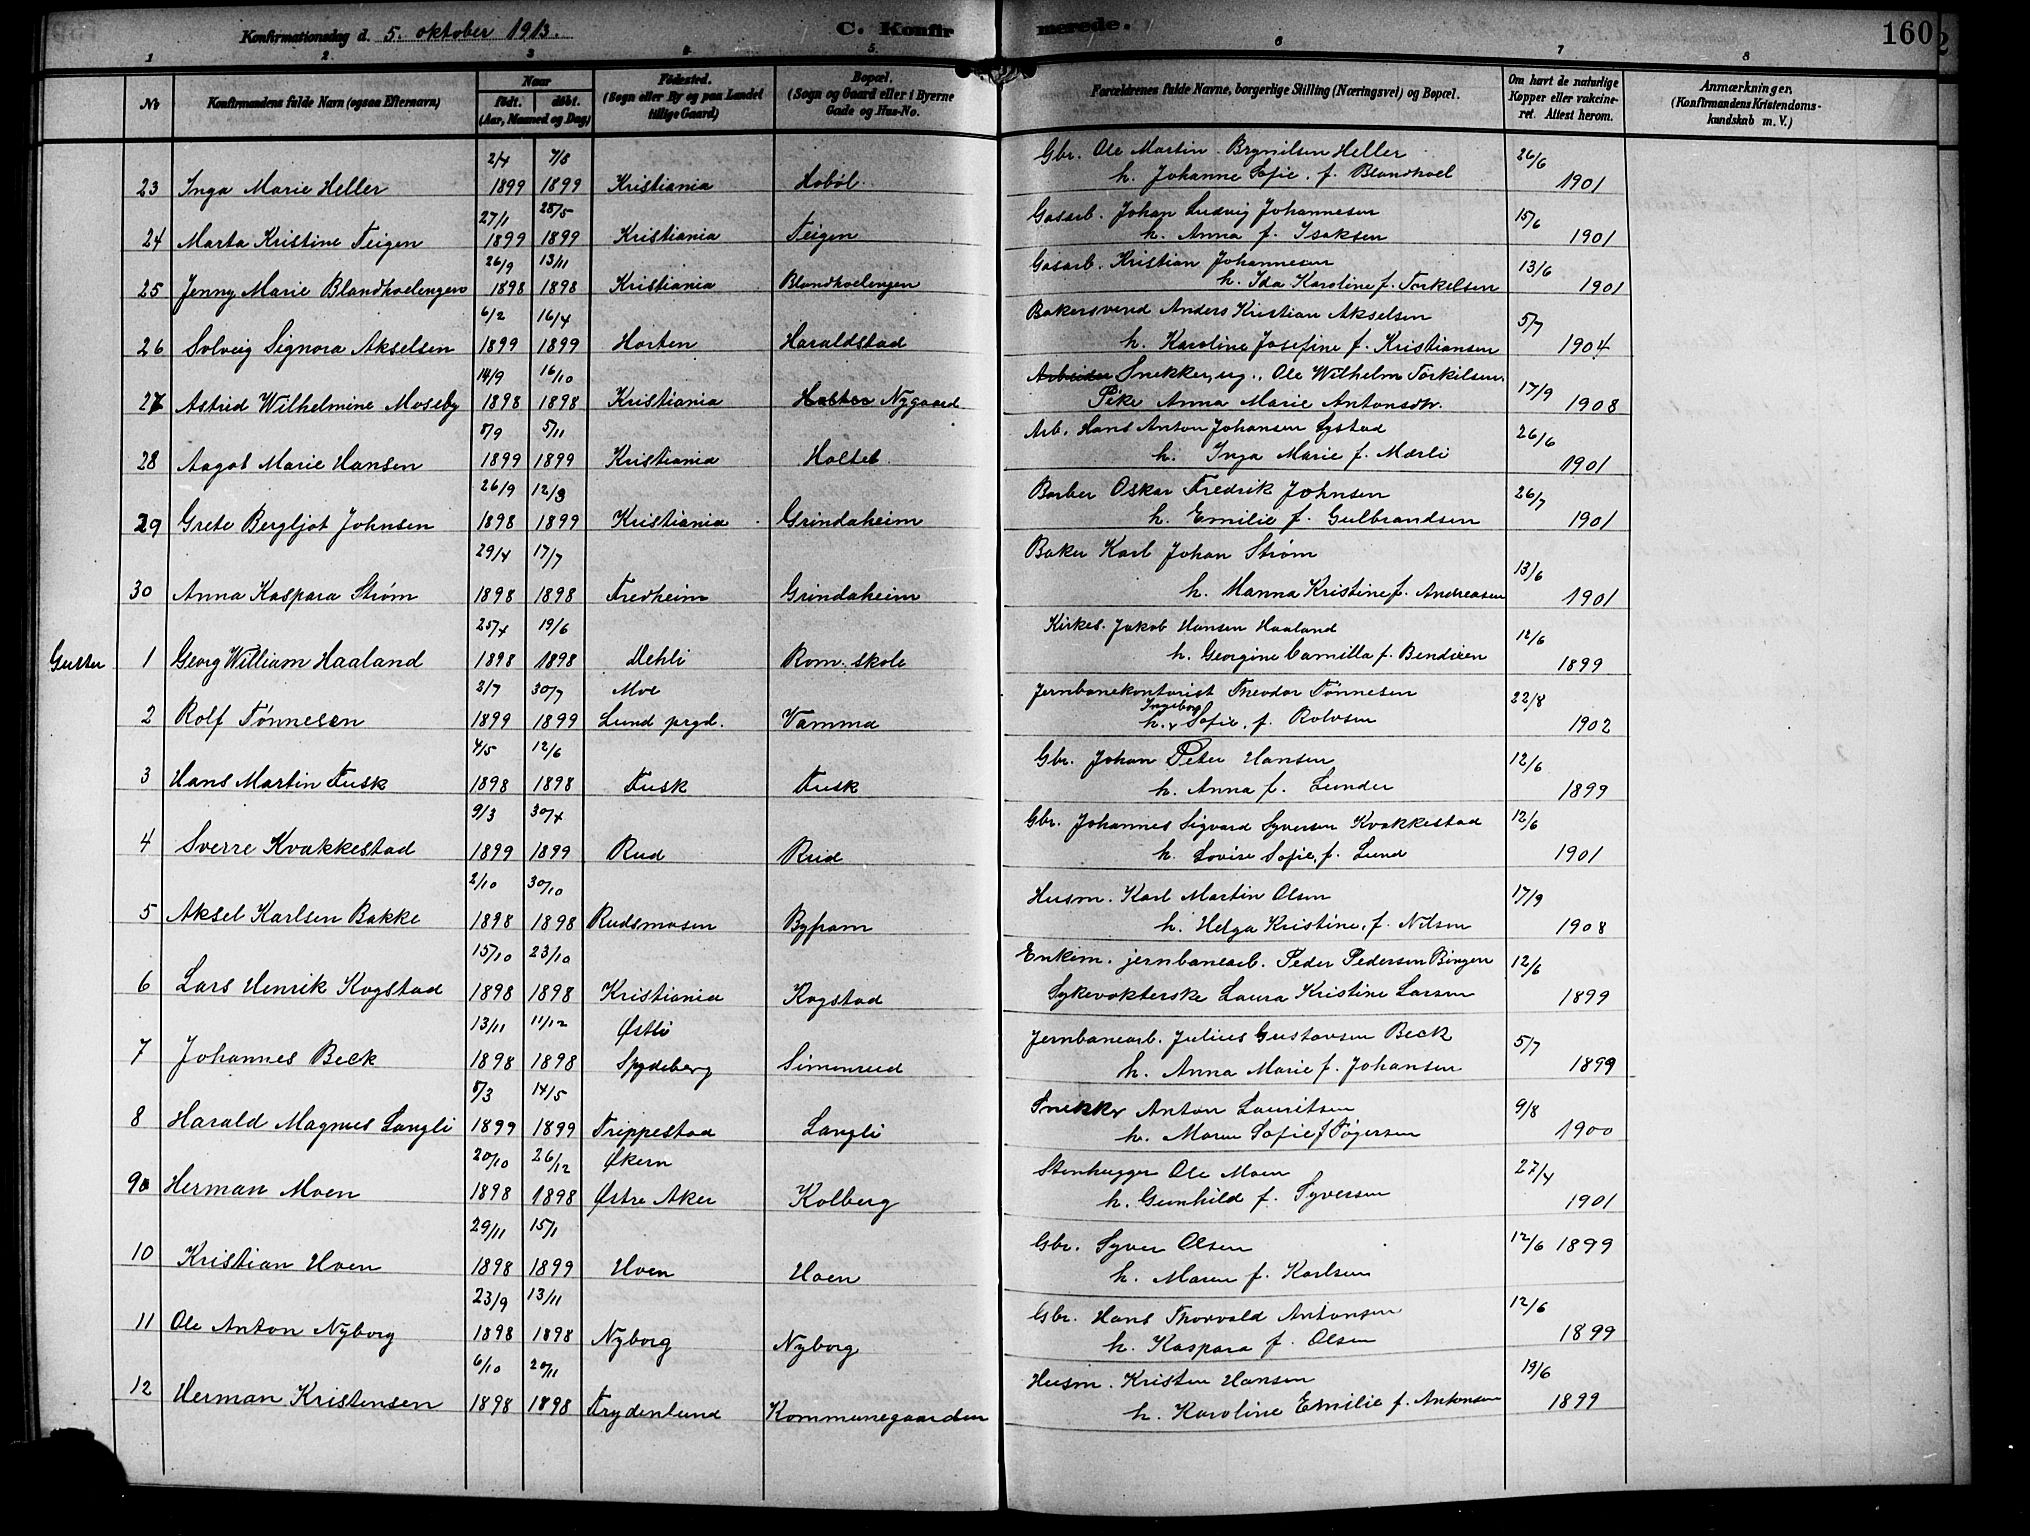 Konfirmationsdag d. 5. oktober 1913.
C. Konfirmerede.
160
1 2. 3 4. 5. 6 7 8
No
Konfirmandens fulde Navn (ogsaa Efternavn)
Naar
født. døbt.
(Aar, Maaned og Dag)
Fødested.
(Sogn eller By og paa Landet
tillige Gaard)
Bopæl.
(Sogn og Gaard eller i Byerne
Gade og Hus-No.
Forældrenes fulde Navne, borgerlige Stilling (Næringsvei) og Bopæl.
Om havt de naturlige
Kopper eller vakcine-
ret. Attest herom.
Anmærkninger.
(Konfirmandens Kristendoms-
kundskab m. V.)
2/4 7/8 Gbr. Ole Martin Brynilsen Heller 26/6
23 Inga Marie Heller 1899 1899 Kristiania Hobøl. h. Johanne Sofie. f. Blandhoel 1901
27/1 28/5 Gasarb. Johan Ludvig Johannesen 15/6
24 Marta Kristine Teigen 1899 1899 Kristiania Teigen h. Anna f. Isaksen 1901
26/9 13/11 Gasarb. Kristian Johannesen 13/6
25 Jenny Marie Blandhoelengen 1898 1898 Kristiania Blandhoelengen h. Ida Karoline f. Torkelsen 1901
6/2 16/4 Bakersvend Anders Kristian Akselsen 5/7
26 Solveig Signora Akselsen 1899 1899 Horten Haraldstad h. Karoline Josefine f. Kristiansen 1904
14/9 16/10 Arbeider Snekker, ug., Ole Wilhelm Torkilsen. 17/9
27 Astrid Wilhelmine Moseby 1898 1898 Kristiania Nygaard Pike Anna Marie Antonsdtr. 1908
5/9 5/11 Arb. Hans Anton Johansen Systad 26/6
28 Aagot Marie Hansen 1899 1899 Kristiania Holtet. h. Inga Marie f. Mærli 1901
26/9 12/3 Barber Oskar Fredrik Johnsen 26/7
29 Grete Bergljot Johnsen 1898 1899 Kristiania Grindaheim h. Emilie f. Gulbrandsen 1901
29/4 17/7 Baker Karl Johan Strøm 13/6
30 Anna Kaspara Strøm 1898 1898 Fredheim Grindaheim h. Hanna Kristine f. Andreasen 1901
25/4 19/6 Kirkes. Jakob Hansen Haaland 12/6
Gutter 1 Georg William Haaland 1898 1898 Mehli Rom. skole h. Georgine Camilla f. Bendixen 1899
2/7 30/7 Moe Jernbanekontorist Theodor Tønnesen 22/8
2 Rolf Tønnesen 1899 1899 Lund prgd. Vamma h. Ingeborg Sofie. f. Rolvsen 1902
4/5 12/6 Gbr. Johan Peter Hansen 12/6
3 Hans Martin Tusk 1898 1898 Tusk Tusk h. Anna f. Lunder 1899
9/3 30/4 Gbr. Johannes Sigvard Syversen Kvakkestad 12/6
4 Sverre Kvakkestad 1899 1899 Rud Rud h. Lovise Sofie, f. Lund 1901
2/10 30/10 Husm. Karl Martin Olsen 17/9
5 Aksel Karlsen Bakke 1898 1898 Rudsmosen Byfram h. Helga Kristine, f. Nilsen 1908
15/10 23/10 Enkem. jernbanearb. Peder Pedersen Bingen 12/6
6 Lars Henrik Kogstad 1898 1898 Kristiania Kogstad Sykevokterske Laura Kristine Larsen 1899
13/11 11/12 Østli Jernbanearb. Julius Gustavsen Beck 5/7
7 Johannes Beck 1898 1898 Spydeberg Simenrud h. Anna Marie f. Johansen 1899
5/3 14/5 Snekker Anton Lauritsen 9/8
8 Harald Magnus Langli 1899 1899 Trippestad Langli h. Maren Sofie f Tøgersen 1900
20/10 26/12 Økern Stenhugger Ole Moen 27/4
9 Herman Moen 1898 1898 Østre Aker Kolberg h. Gunhild f. Syversen 1901
29/11 15/1 Gbr. Syver Olsen 12/6 1899
10 Kristian Hoen 1898 1899 Hoen Hoen h. Maren f. Karlsen
23/9 13/11 Gbr. Hans Thorvald Antonsen 12/6
11 Ole Anton Nyborg 1898 1898 Nyborg Nyborg h. Kaspara f. Olsen 1899
6/10 20/11 Husm. Kristen Hansen 19/6
12 Herman Kristensen 1898 1898 Frydenlund Kommunegaarden h. Karoline Emilie f. Antonsen 1899